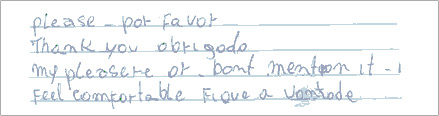 please - por favor
Thank you obrigado
my pleasere or . Dont mention it - i
Feel comfortable Fique a vontade